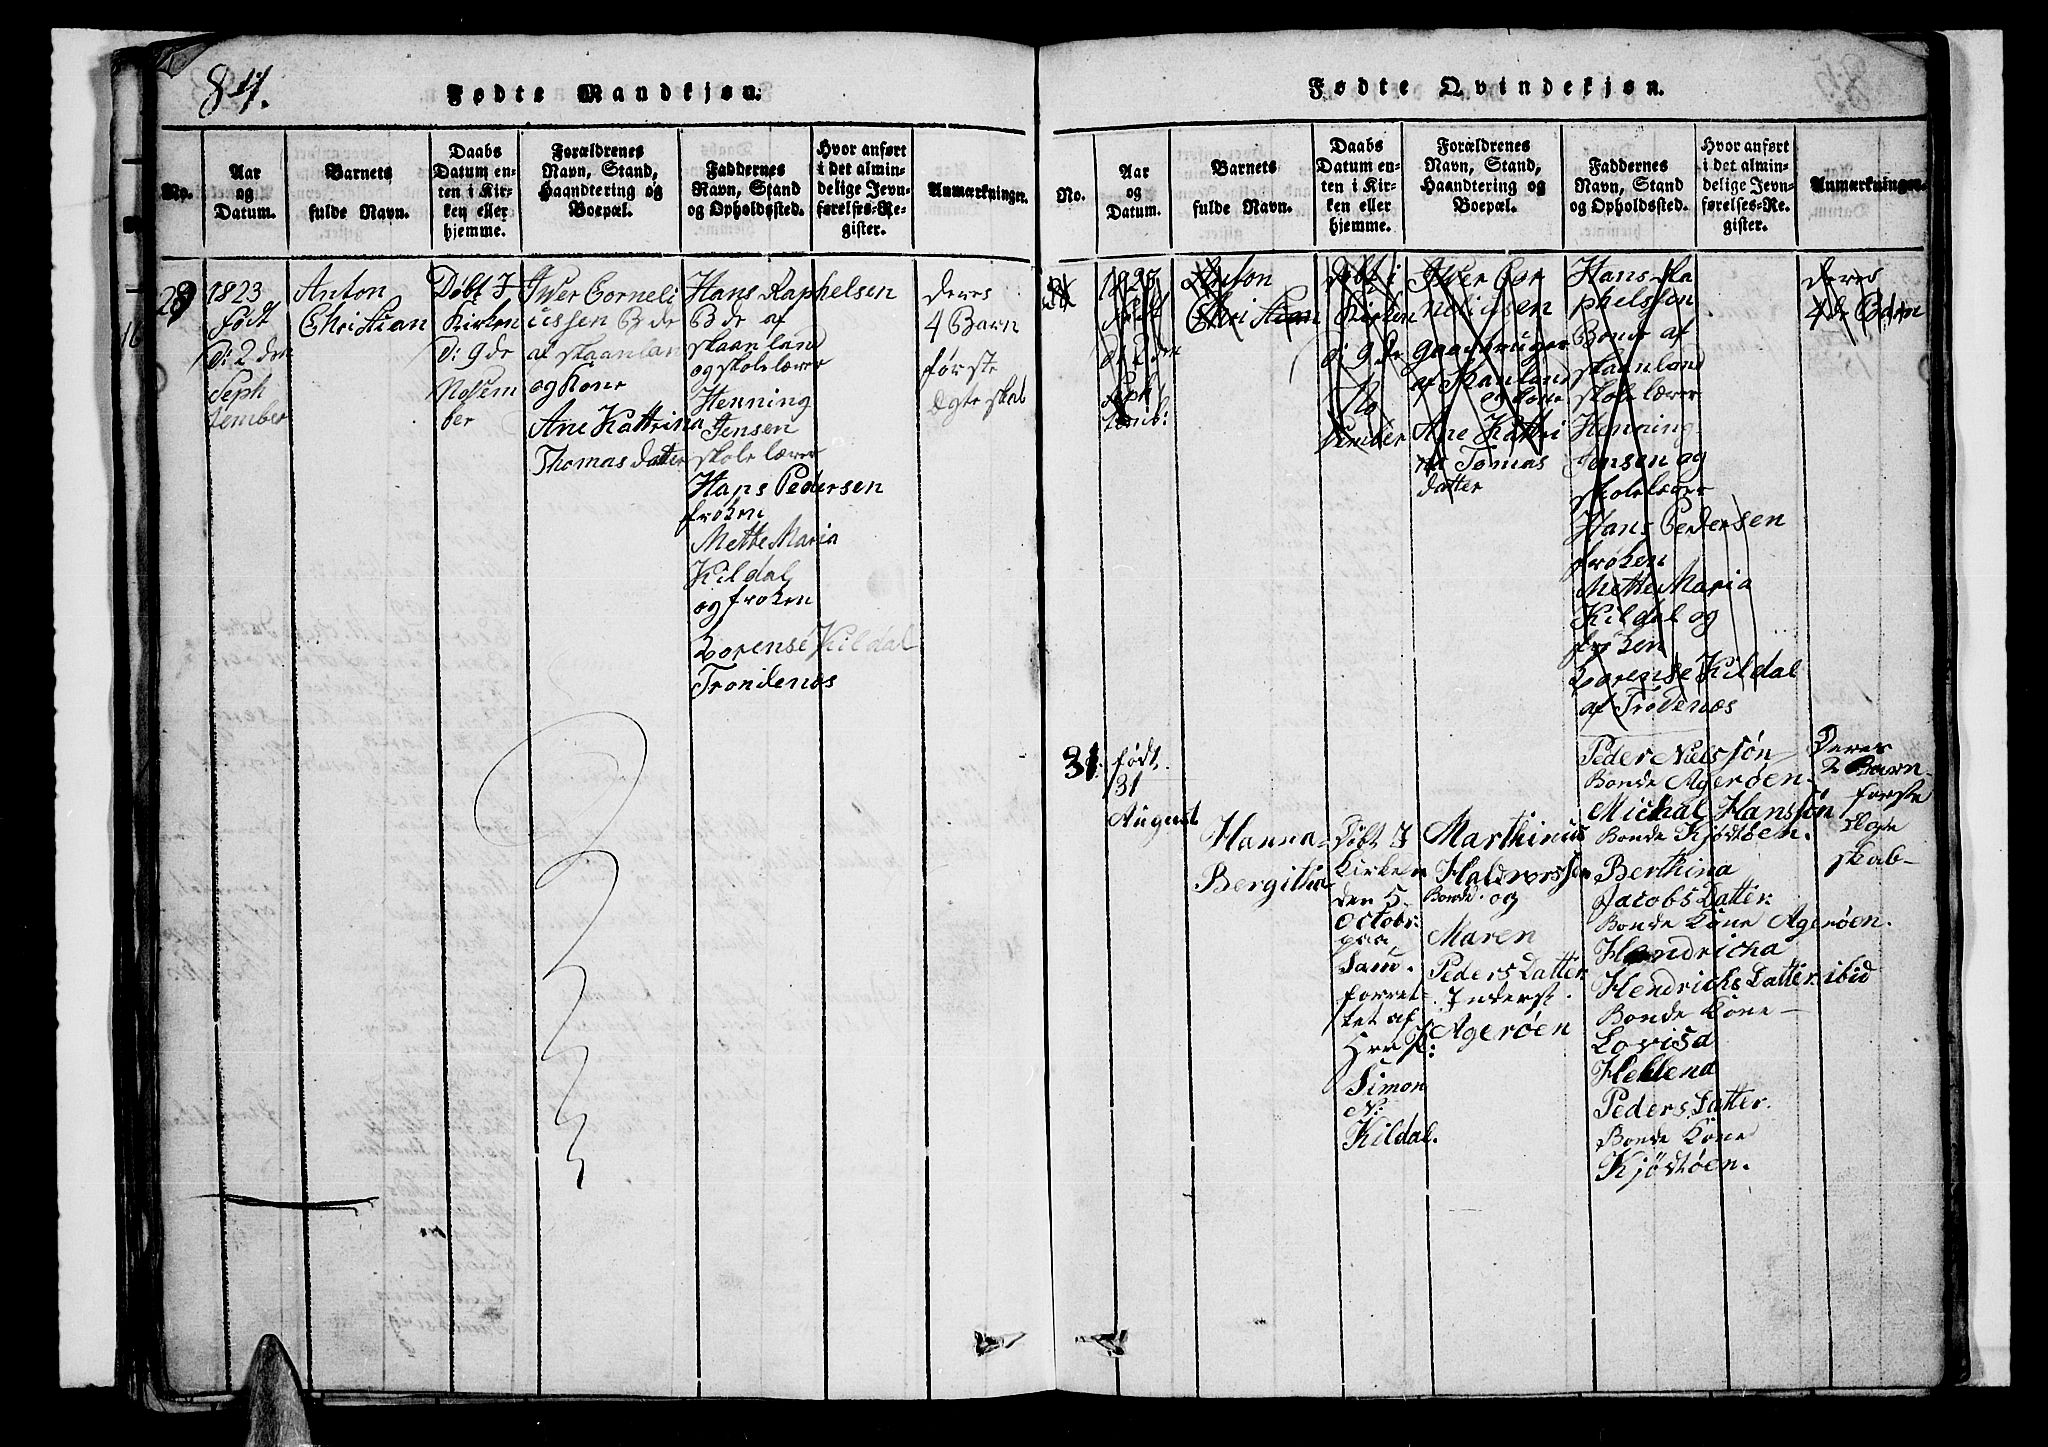 84.
Fødte Mandkjøn.
No.
Aar
og
Datum.
Barnets
fulde Navn.
Daabs
Datum en-
ten i Kir-
ken eller
hjemme.
Forældrenes
Navn, Stand,
Haandtering og
Boepæl.
Faddernes
Navn, Stand
og Opholdssted.
Hvor anført
i det almin-
delige Jevn-
førelses-Re-
gister.
Anmærkninger.
1823
født
D: 2 den
Seph
tember
Anton
Christian
Døbt I
Kirken
D: 9 de
Novem
ber
Iver Corneli
ussen B de
af skaanlan
og Kone
Ane Kattrina
Thomas datter
Hans Raphelsen
B de af
skaanland
og skole lærer
Henning
Jensen
skole lærer
Hans Pedersen
frøken
Mette Maria
Kildal
og frøken
Lorense Kildal
Trondenæs
deres
4 Barn
første
Egte skab
Fødte Qvindekjøn.
No.
Aar
og
Datum.
Barnets
fulde Navn.
Daabs
Datum en-
ten i Kir-
ken eller
hjemme.
Forældrenes
Navn, Stand,
Haandtering og
Boepæl.
Faddernes
Navn, Stand
og Opholdssted.
Hvor anført
i det almin-
delige Jevn-
førelses-Re-
gister.
Anmærkninger.
født
Anton
Christian
døbt i
Kirken
D: 9 de
No
vember
Iver Cor
neliusen
gaardbruger
af Skanland
og Kone
Ane Kattri
na Tomas
datter
Hans Ra
phelssen
Bonde af
skaanland
skole lærer
Henning
Jensen og
skolelærer
Hans Pedersen
frøken
Mette Maria
Kildal og
frøken
Lorense Kildal
af Trodenæs
deres
4 de Barn
31.
født.
31
August
Hanna
Bergitha
Døbt I
Kirken
den 5.
Octobr:
paa
Sam.
forret-
tet af
Hrr P:
Simon
N:
Kildal.
Marthinus
Haldorssen
Bonde og
Maren
Peders Datter
Inderst.
Agerøen
Peder Nielssøn
Bonde Agerøen.
Michal Hanssøn
Bonde Kjødtøen.
Berthina
Jacobs Datter
Bonde Kone Agerøen.
Hendricha
Hendrichs Datter ibid
Bonde Kone —
Lovisa
Hellena
Peders Datter.
Bonde Kone
Kjødtøen.
Deres
2 Barn
første
Egte
skab-